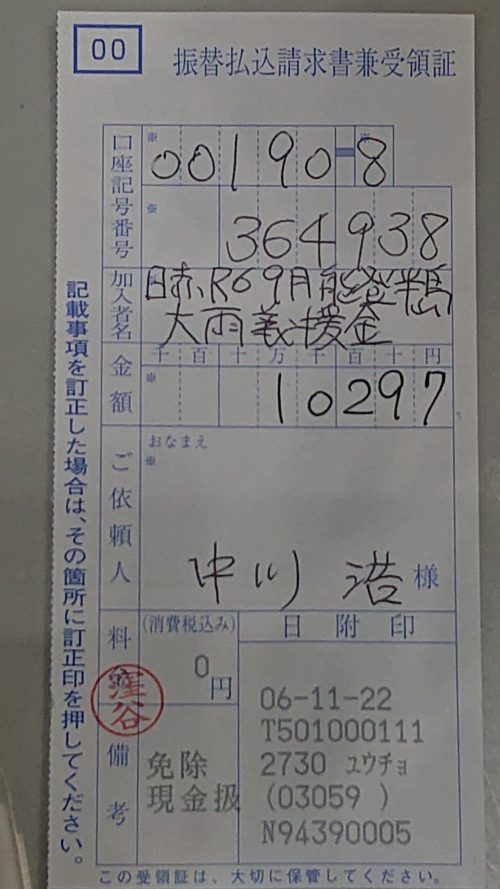 00
振替払込請求書兼受領証
口座記号番号
※
00190-8
※
364938
加入者名
日赤R69月能登半島
大雨義援金
金額
千百十万千百十円
※
10297
ご依頼人
おなまえ
※
中川 浩 様
料金
(消費税込み)
0円
日附印
06-11-22
T501000111
2730 ユウチョ
(03059 )
N94390005
備考
免除
現金扱
窪谷
記載事項を訂正した場合は、その箇所に訂正印を押してください。
この受領証は、大切に保管してください。